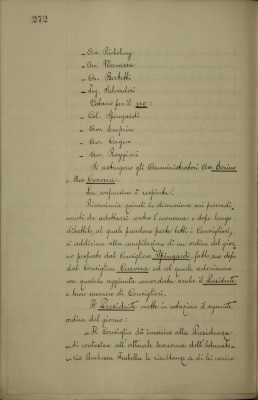 272
- Avv. Richelmy
- Avv. Navassa
- Av. Bertetti
- Ing. Salvadori
Votano per il no:
- Col. Spingardi
- Avv.
- Avv. Cagno
- Avv. Roggieri
Si astengono gli Amministratori Avv. Bosino
e Avv. Craveri.
La sospensiva è respinta.
Ricomincia quindi la discussione sui provvedi-
menti da adottarsi contro l'economo e dopo lungo
dibattito, al quale prendono parte tutti i Consiglieri,
si addiviene alla compilazione di un ordine del gior
no proposto dal Consigliere Spingardi, fatto suo dopo
dal Consigliere Craveri ed al quale aderiscono
con qualche aggiunta concordata anche il Presidente
e buon numero di Consiglieri.
Il Presidente mette in votazione il seguente
ordine del giorno:
« Il Consiglio dà incarico alla Presidenza
di contestare all'attuale economo dell'Educato-
rio Duchessa Isabella le risultanze a di lui carico